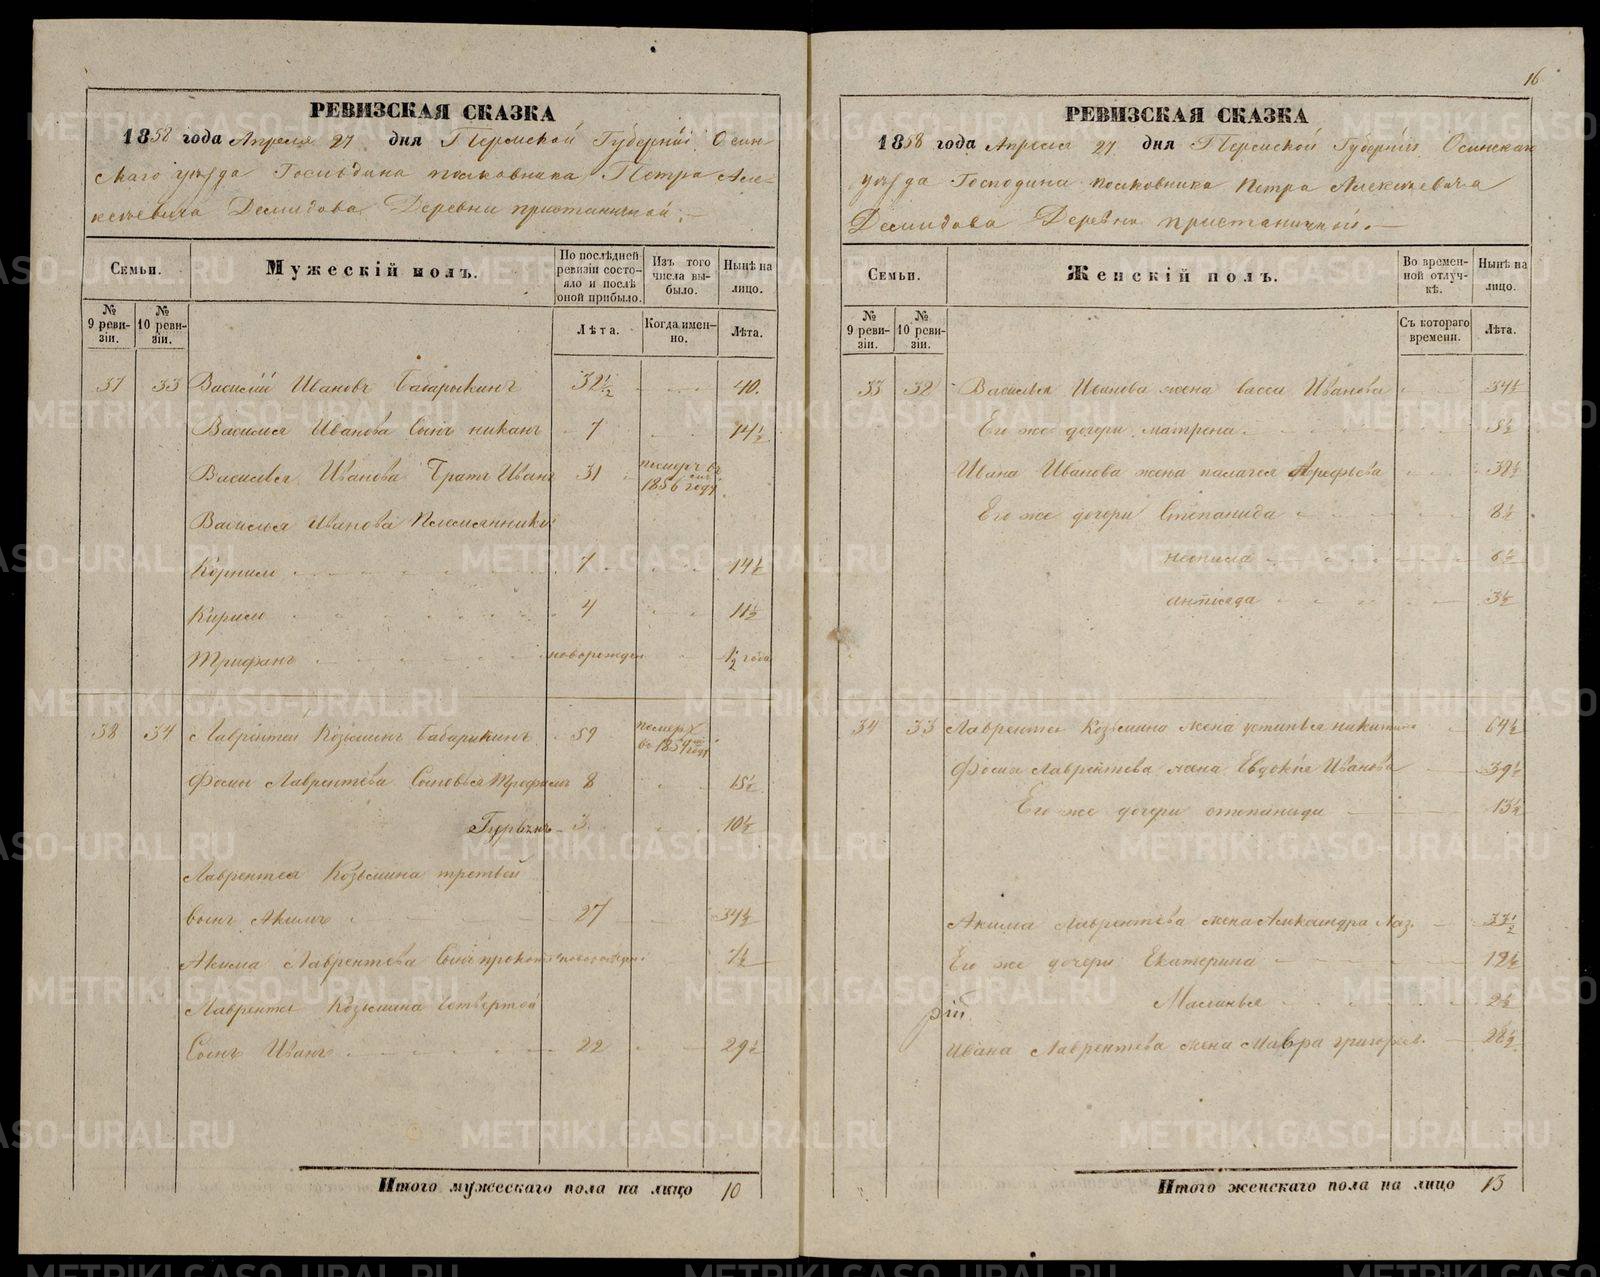 РЕВИЗСКАЯ СКАЗКА
1858 года Апреля 27 дня Пермской Губерніи Осин-
скаго уѣзда Господина полковника Петра Але-
ксѣевича Демидова Деревни пристаничной.
Семьи.
Мужескій полъ.
По послѣдней ревизіи состо-
яло и послѣ оной прибыло.
Изъ того числа вы-
было.
Нынѣ на лицо.
№ 9 реви-
зіи.
№ 10 реви-
зіи.
Лѣта.
Когда имен-
но.
Лѣта.
37 33 Василій Ивановъ Бабарыкинъ 32½ 40.
Василья Иванова Сынъ 7 14½
Василья Иванова Братъ Иванъ 31 померъ въ 1856 году
Василья Иванова Племянники
Корнило 7 14½
Кирило 4 11½
Трифанъ новорожден ½ года
38 34 Лаврентей Козьминъ Бабарикинъ 59 померъ въ году
Лаврентева Сыновья Трофимъ 8 15½
3 10½
Лаврентея Козьмина третьей
Сынъ Акимъ 27 34½
Акима Лаврентева Сынъ
Лаврентея Козьмина Четвертой
Сынъ Иванъ 22 29½
Итого мужескаго пола на лицо 10
16
РЕВИЗСКАЯ СКАЗКА
1858 года Апреля 27 дня Пермской Губерніи Осинскаго
уѣзда Господина полковника Петра Алексѣевича
Демидова Деревни пристаничной.
Семьи.
Женскій полъ.
Во времен-
ной отлуч-
кѣ.
Нынѣ на лицо.
№ 9 реви-
зіи.
№ 10 реви-
зіи.
Съ котораго времени.
Лѣта.
33 32 Василья Иванова жена Васса Иванова 34½
Его же дочери матрена 8½
Ивана Иванова жена палагея Арефьева 38½
Его же дочери Степанида 8½
6½
3½
34 33 Лаврентея Козьмина жена устинья никитина 64½
Лаврентева жена Евдокея Иванова 39½
Его же дочери степанида 13½
Акима Лаврентева жена Александра Лаз. 33½
Его же дочери Екатерина 12½
Маланья 2½
Ивана Лаврентева жена Мавра григорьев. 28½
Итого женскаго пола на лицо 13
METRIKI.GASO-URAL.RU